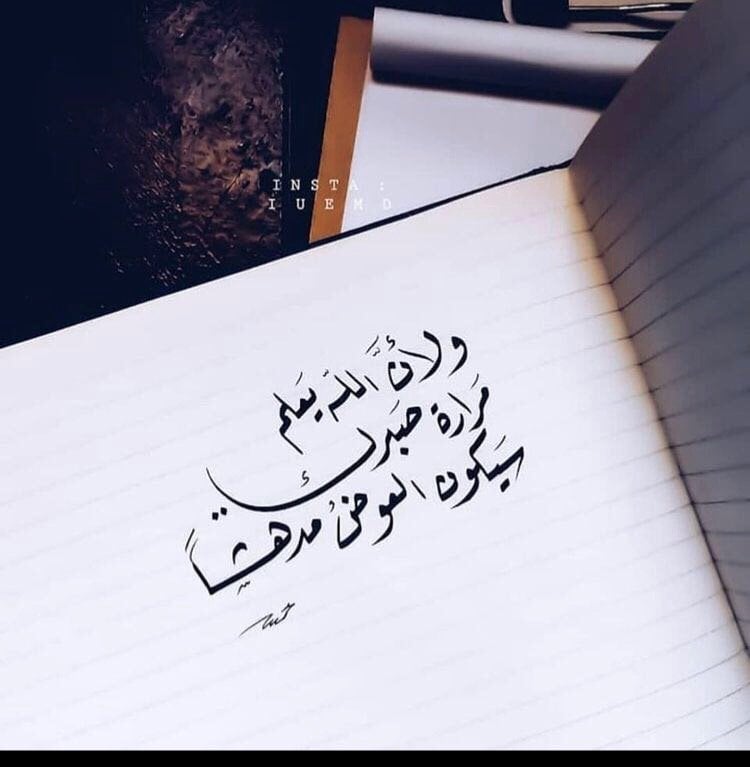 INSTA :
IUEMD
ولأنَّ اللّٰه يَعلم
مَرارة صَبرك
سَيكون العوضُ مدهشاً